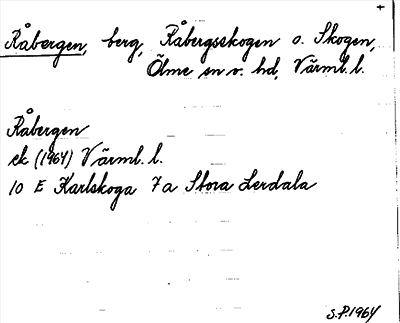 +
Råbergen, berg, Råbergsskogen o. Skogen,
Ölme sn o. hd, Värml. l.
Råbergen
ek (1964) Värml. l.
10 E Karlskoga 7a Stora Lerdala
S.P. 1964